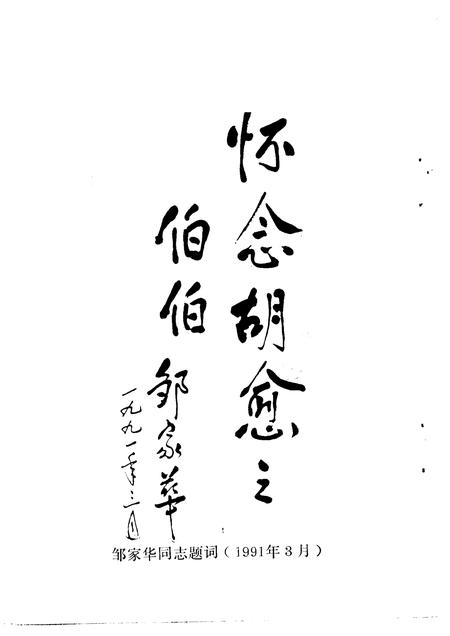 怀念胡愈之
伯伯
邹家华
一九九一年三月
邹家华同志题词(1991年3月)